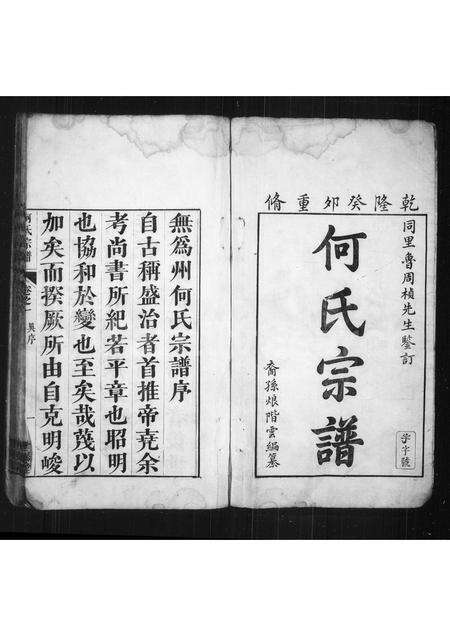 乾隆癸卯重脩
同里魯周楨先生鑒訂
何氏宗譜
裔孫烺階雲編纂
字號
無為州何氏宗譜序
自古稱盛治者首推帝堯余
考尚書所紀若平章也昭明
也協和於變也至矣哉蔑以
加矣而揆厥所由自克明峻
何氏宗譜 卷之一 吳序 一